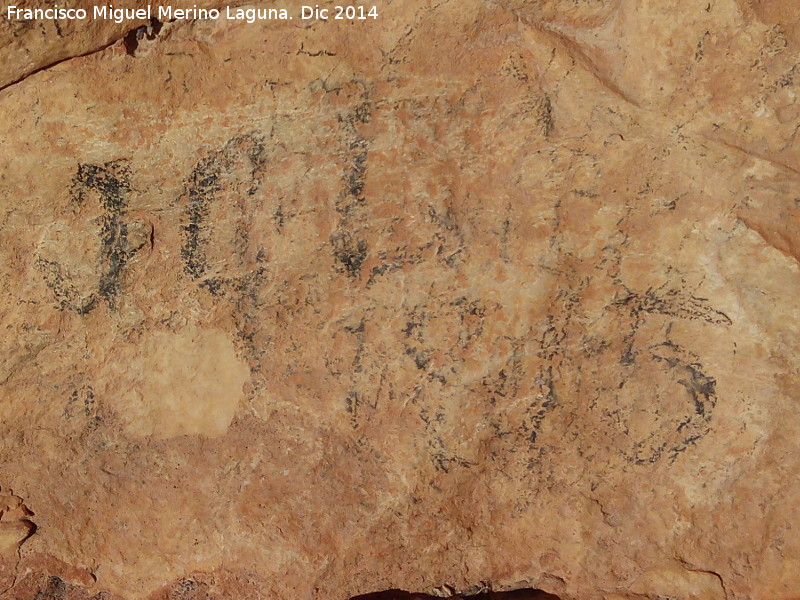 Francisco Miguel Merino Laguna. Dic 2014
J q L
1915